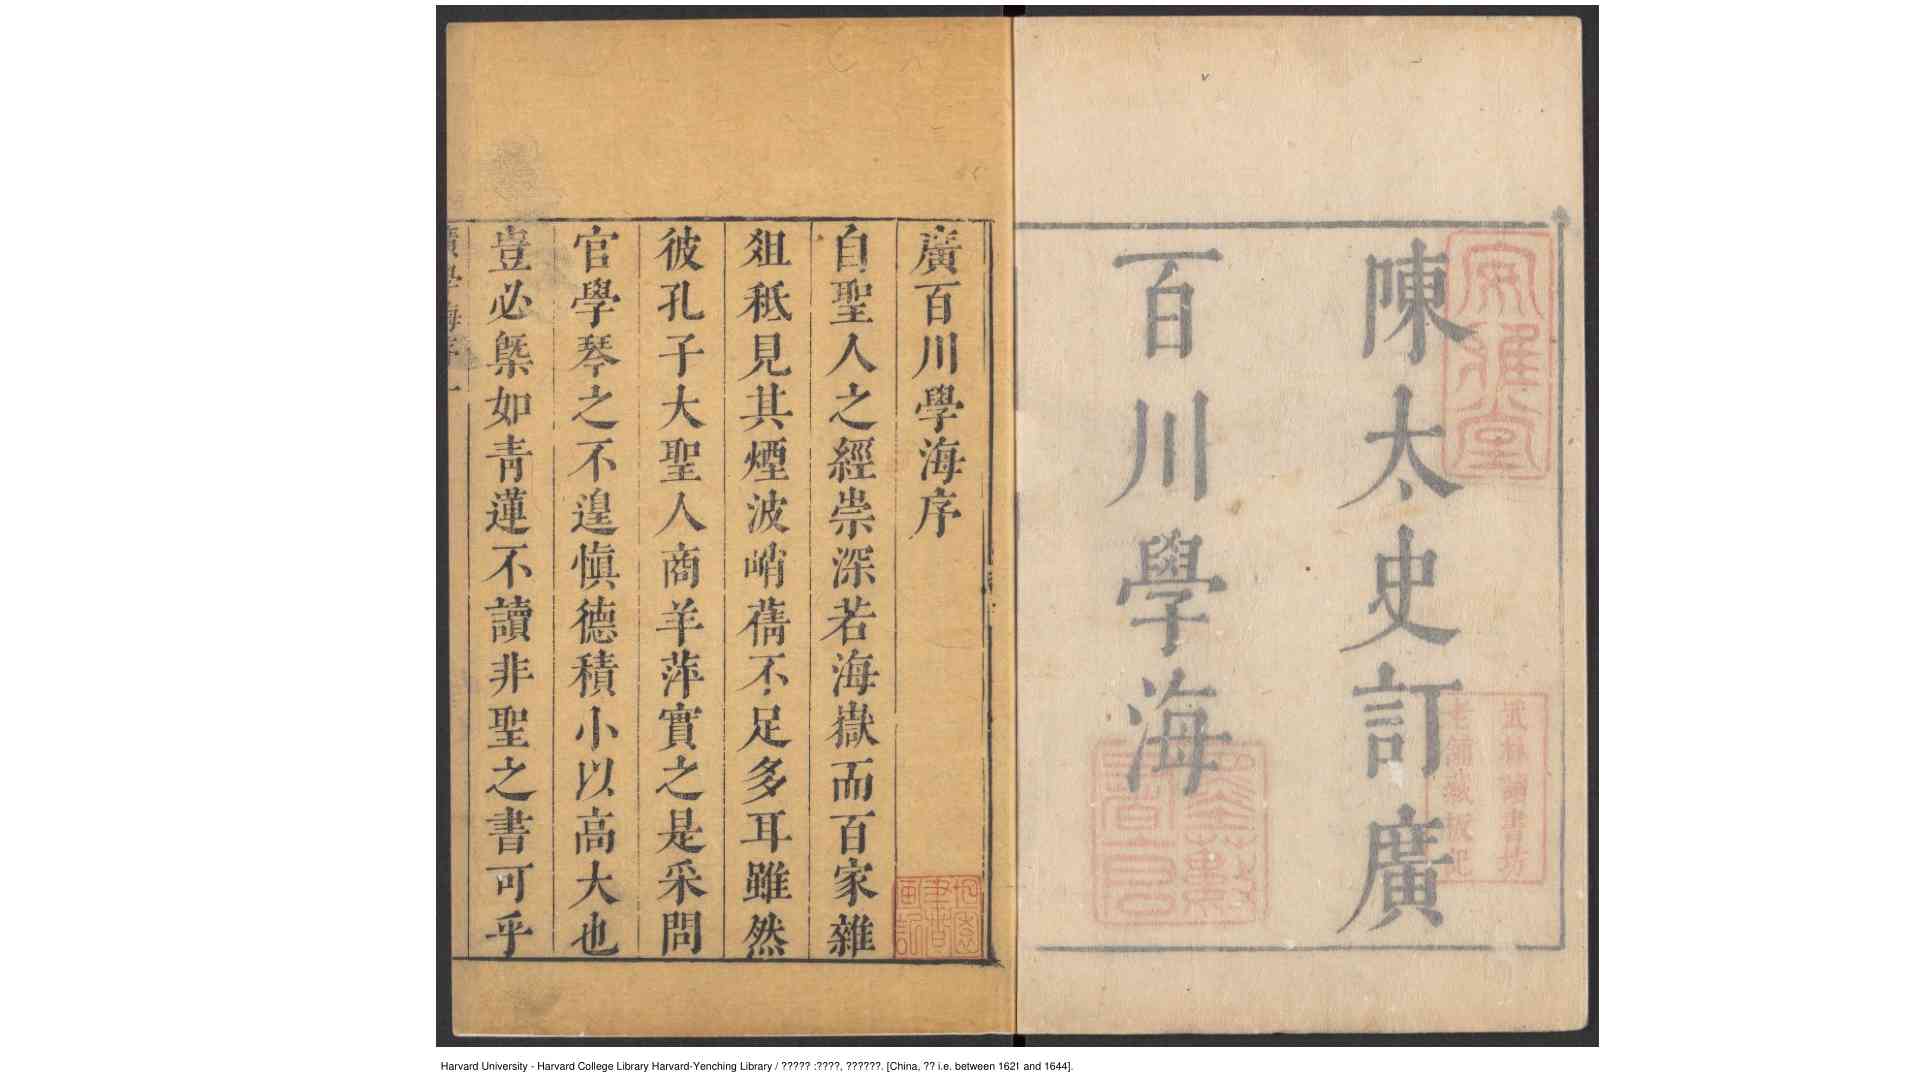 陳太史訂廣
百川學海
武林讀書坊
老舖藏板記
廣百川學海序
自聖人之經崇深若海嶽而百家雜
俎秪見其煙波峭蒨不足多耳雖然
彼孔子大聖人商羊萍實之是采問
官學琴之不遑愼德積小以高大也
豈必槩如靑蓮不讀非聖之書可乎
Harvard University - Harvard College Library Harvard-Yenching Library / ????? :????, ??????. [China, ?? i.e. between 1621 and 1644].